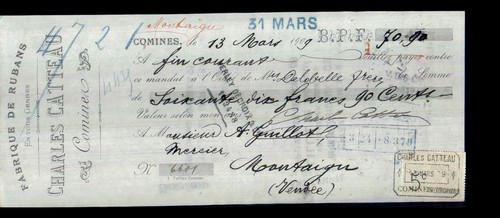 FABRIQUE DE RUBANS
EN TOUS GENRES
CHARLES CATTEAU
à Comines
4721
Montaigu
31 MARS
COMINES, le 13 Mars 1909 B.P.F. 70.90
A fin courant Veuillez payer contre
ce mandat à l'Ordre de Mrs Delobelle frères la Somme
de Soixante dix francs 90 Cents
Valeur selon mon
A Monsieur A. Guillot,
Mercier
Montaigu
(Vendée)
No 6601
CHARLES CATTEAU
MARS
COMINES